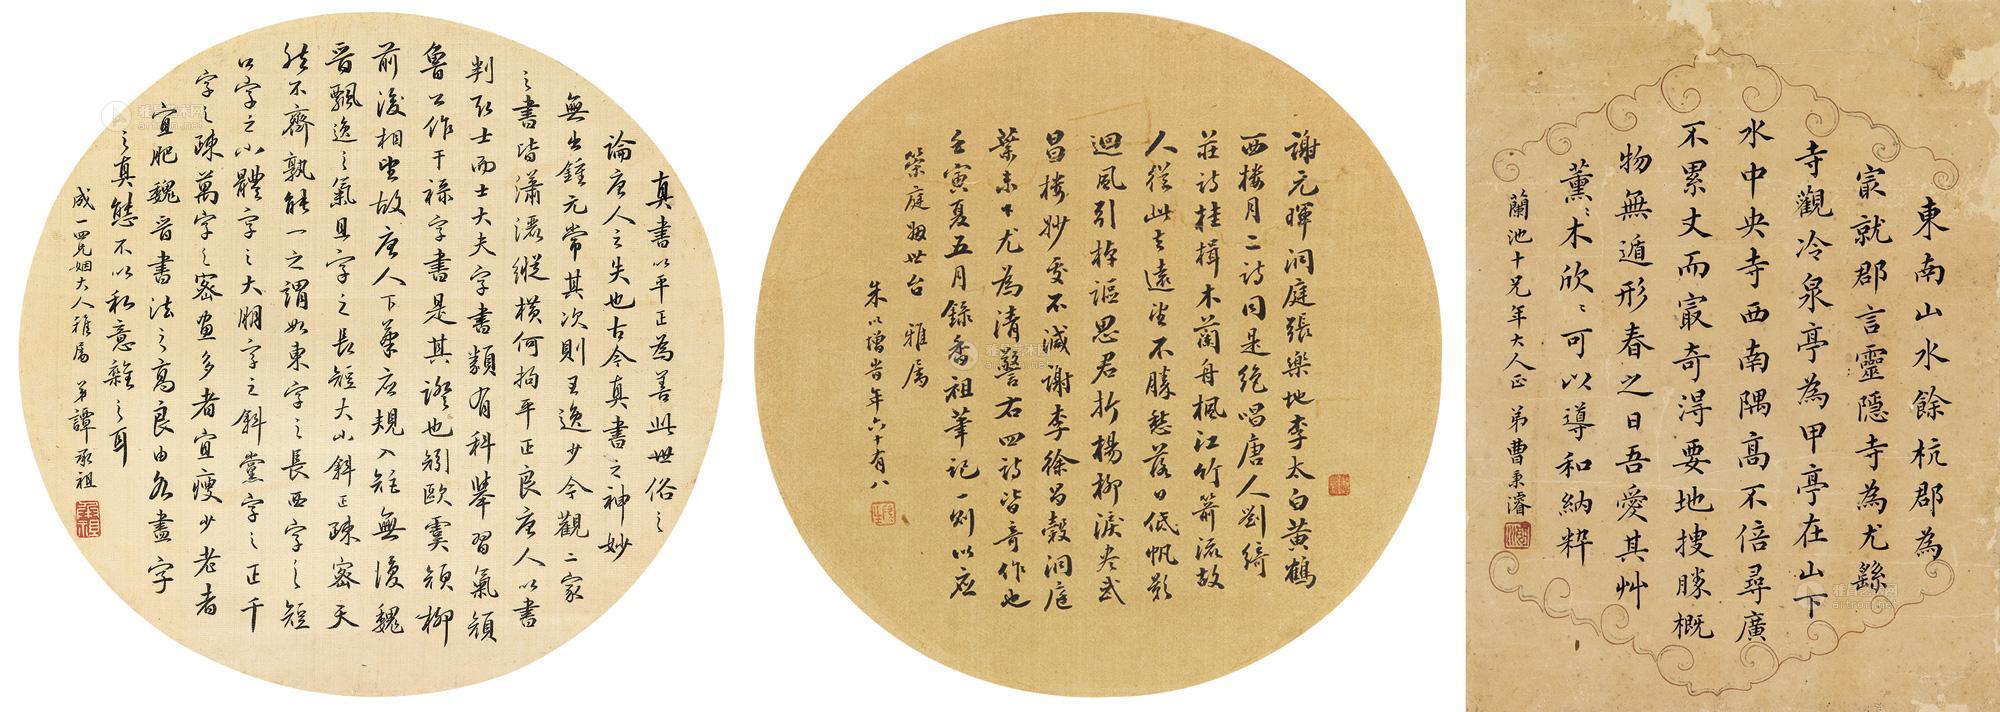 真書以平正為善此世俗之
論唐人之失也古今真書之神妙
無出鍾元常其次則王逸少今觀二家
之書皆瀟灑縱橫何拘平正良唐人以書
判取士而士大夫字書類有科舉習氣顏
魯公作干祿字書是其證也矧歐虞顏柳
前後相望故唐人下筆應規入矩無復魏
晉飄逸之氣且字之長短大小斜正疎密天
然不齊孰能一之謂如東字之長西字之短
口字之小體字之大朋字之斜黨字之正千
字之疎萬字之密畫多者宜瘦少者
宜肥魏晉書法之高良由各盡字
之真態不以私意雜之耳
成一四兄姻大人雅屬 弟譚承祖
謝元暉洞庭張樂地李太白黃鶴
西樓月二詩同是絕唱唐人劉綺
莊詩桂楫木蘭舟楓江竹箭流故
人從此去遠望不勝愁落日低帆影
迴風引棹謳思君折楊柳淚盡武
昌樓妙處不減謝李徐昌穀洞庭
葉未下尤為清警右四詩皆奇作也
壬寅夏五月錄香祖筆記一則以應
榮庭姻世台 雅屬
朱以增時年六十有八
東南山水餘杭郡為
冣就郡言靈隱寺為尤繇
寺觀冷泉亭為甲亭在山下
水中央寺西南隅高不倍尋廣
不累丈而冣奇得要地搜勝概
物無遁形春之日吾愛其艸
薰〻木欣〻可以導和納粹
蘭池十兄年大人正 弟曹秉濬